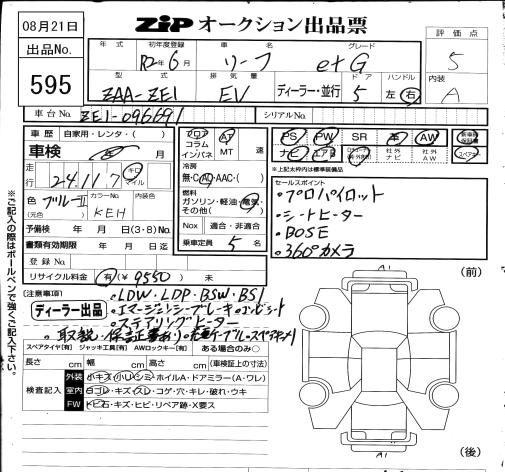 08月21日
ZIP オークション出品票
出品No.
595
年式 初年度登録 車名 グレード 評価点
R2年6月 リーフ e+G 5
型式 排気量 ドア ハンドル 内装
ZAA-ZE1 EV ディーラー・並行 5 左・右 A
車台No. ZE1-096691 シリアルNo.
車歴 自家用・レンタ・( )
車検 年 月
走行 24,117 キロ マイル
色 ブルーII (元色) カラーNo. KEH 内装色
予備検 年 月 日(3・8)No.
書類有効期限 年 月 日迄
登録No.
リサイクル料金 有(¥9550) 未
フロア コラム インパネ
AT MT 速
冷房
無・C・AC・AAC・( )
燃料
ガソリン・軽油・電気・その他( )
Nox 適合・非適合
乗車定員 5 名
PS PW SR 革 AW
ナビ エアB 社外ナビ 社外AW スペアキー
※上記太枠内は標準装備品
セールスポイント
・プロパイロット
・シートヒーター
・BOSE
・360°カメラ
(注意事項)
ディーラー出品
・LDW・LDP・BSW・BSI
・エマージェンシーブレーキ
・ステアリングヒーター
・取説・保証書あり
スペアタイヤ[有] ジャッキ工具[有] AWロックキー[有] ある場合のみ○
長さ cm 幅 cm 高さ cm (車検証上の寸法)
検査記入
外装 小キズ・小ヘコミ・ホイルA・ドアミラー(A・ワレ)
室内 ヨゴレ・キズ・スレ・コゲ・穴・キレ・破れ・ウキ
FW トビ石・キズ・ヒビ・リペア跡・X要ス
※ご記入の際はボールペンで強くご記入下さい。
(前)
A1
A1
(後)